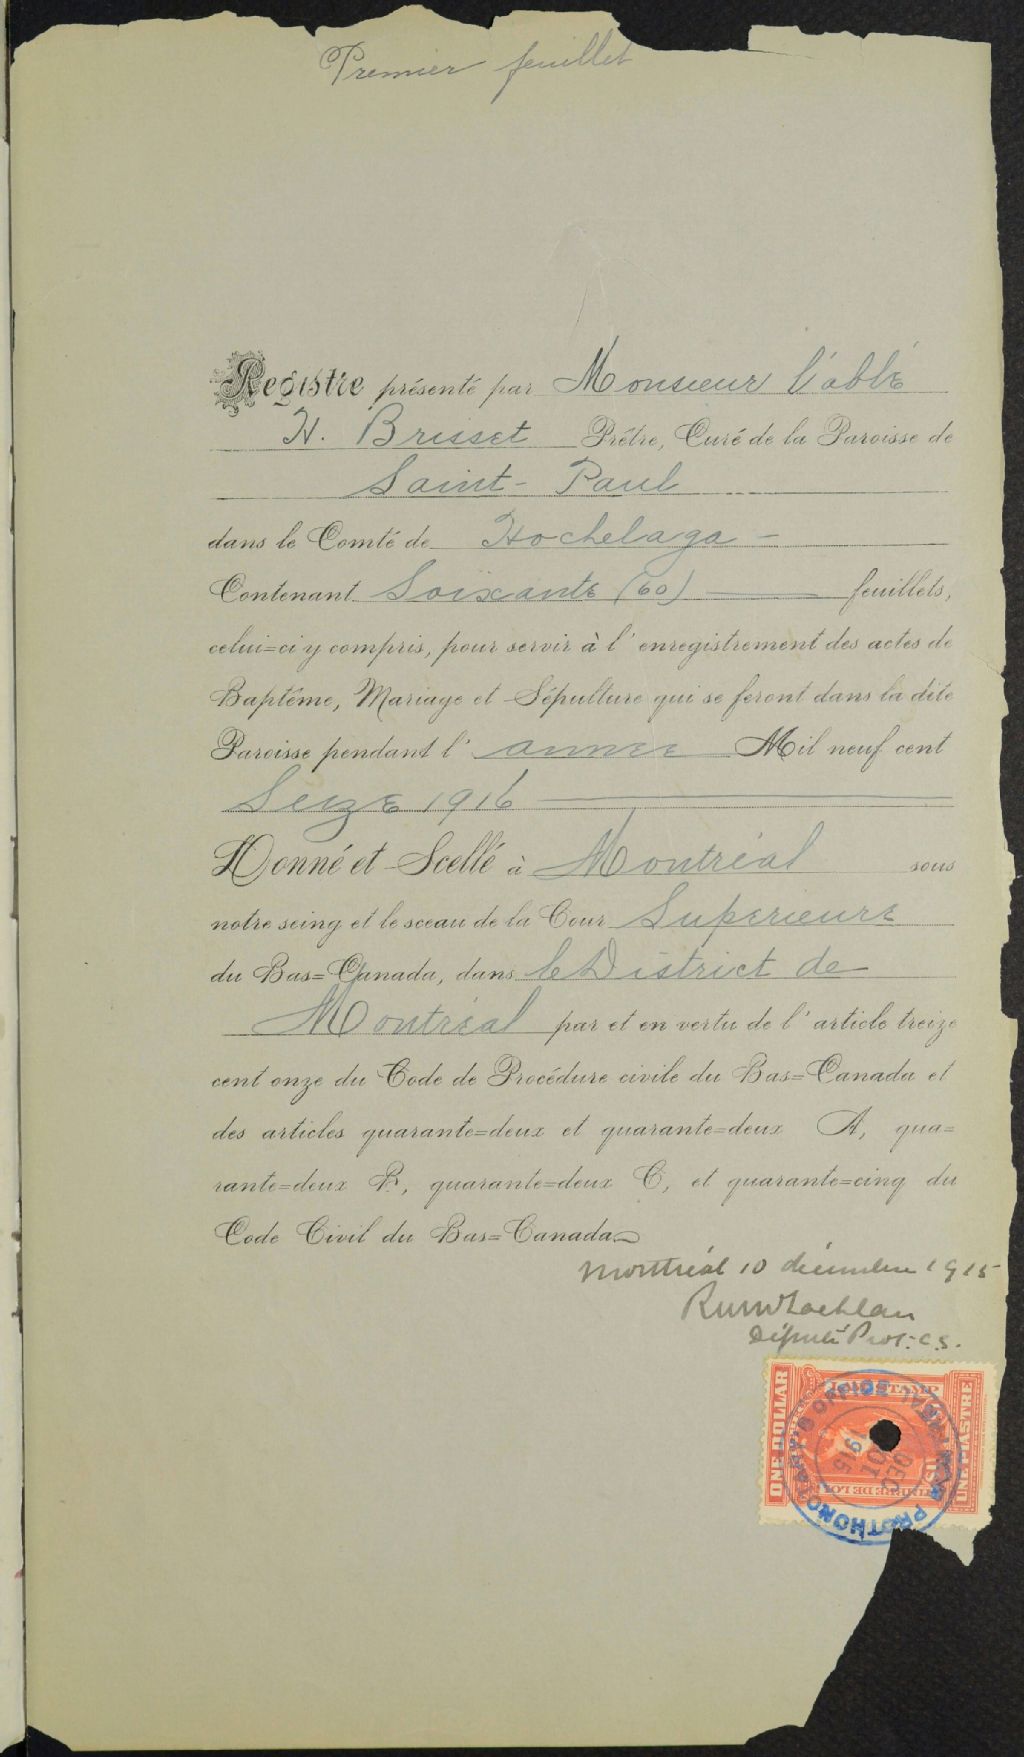 Premier feuillet
Registre présenté par Monsieur l'abbé
H. Brisset Prêtre, Curé de la Paroisse de
Saint-Paul
dans le Comté de Hochelaga -
Contenant Soixante (60) feuillets,
celui=ci y compris, pour servir à l'enregistrement des actes de
Baptême, Mariage et Sépulture qui se feront dans la dite
Paroisse pendant l'année Mil neuf cent
Seize 1916
Donné et Scellé à Montréal sous
notre seing et le sceau de la Cour Superieure
du Bas=Canada, dans le District de
Montréal par et en vertu de l'article treize
cent onze du Code de Procédure civile du Bas=Canada et
des articles quarante=deux et quarante=deux A, qua=
rante=deux B, quarante=deux C, et quarante=cinq du
Code Civil du Bas=Canada
Montréal 10 décembre 1915
Député Prot. C.S.
ONE DOLLAR
UNE PIASTRE
PROTHONOTARY'S OFFICE
DEC
1915